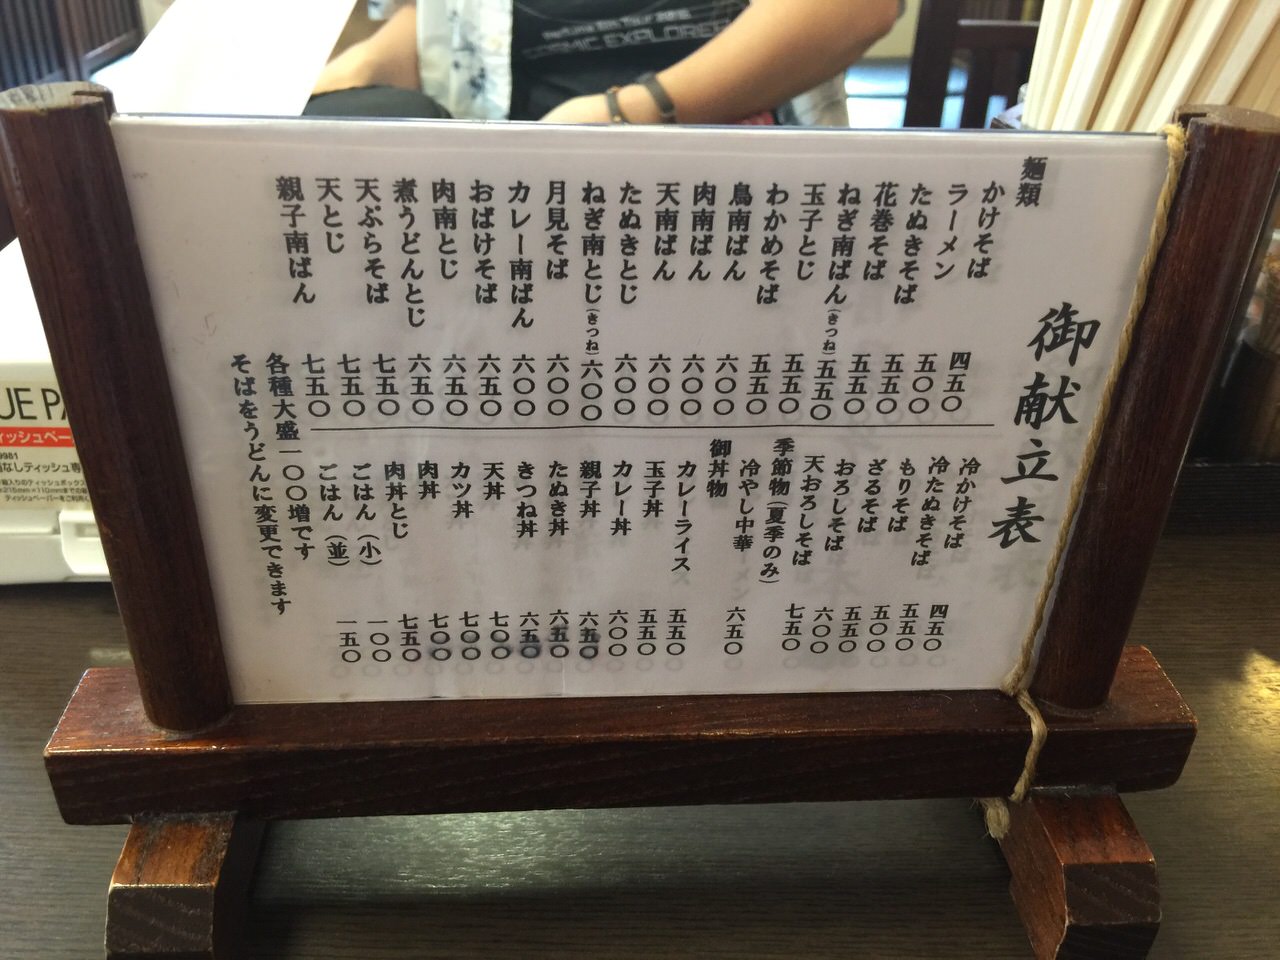 御献立表
麺類
かけそば 四五〇
ラーメン 五〇〇
たぬきそば 五五〇
花巻そば 五五〇
ねぎ南ばん(きつね) 五五〇
玉子とじ 五五〇
わかめそば 五五〇
鳥南ばん 六〇〇
肉南ばん 六〇〇
天南ばん 六〇〇
たぬきとじ 六〇〇
ねぎ南とじ(きつね) 六〇〇
月見そば 六〇〇
カレー南ばん 六〇〇
おばけそば 六五〇
肉南とじ 六五〇
煮うどんとじ 六五〇
天ぷらそば 七五〇
天とじ 七五〇
親子南ばん 七五〇
冷かけそば 四五〇
冷たぬきそば 五五〇
もりそば 五〇〇
ざるそば 五五〇
おろしそば 六〇〇
天おろしそば 七五〇
季節物(夏季のみ)
冷やし中華 六五〇
御丼物
カレーライス 五五〇
玉子丼 五五〇
カレー丼 六〇〇
親子丼 六五〇
たぬき丼 六五〇
きつね丼 六五〇
天丼 七〇〇
カツ丼 七〇〇
肉丼 七〇〇
肉丼とじ 七五〇
ごはん(小) 一〇〇
ごはん(並) 一五〇
各種大盛一〇〇増です
そばをうどんに変更できます
COSMIC EXPLORER
UE PA
ィッシュペー
9981
なしティッシュ専